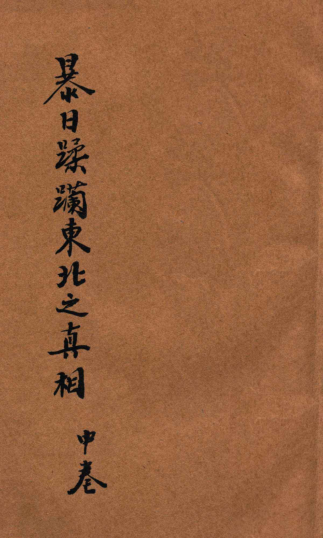 暴日蹂躪東北之真相
申卷